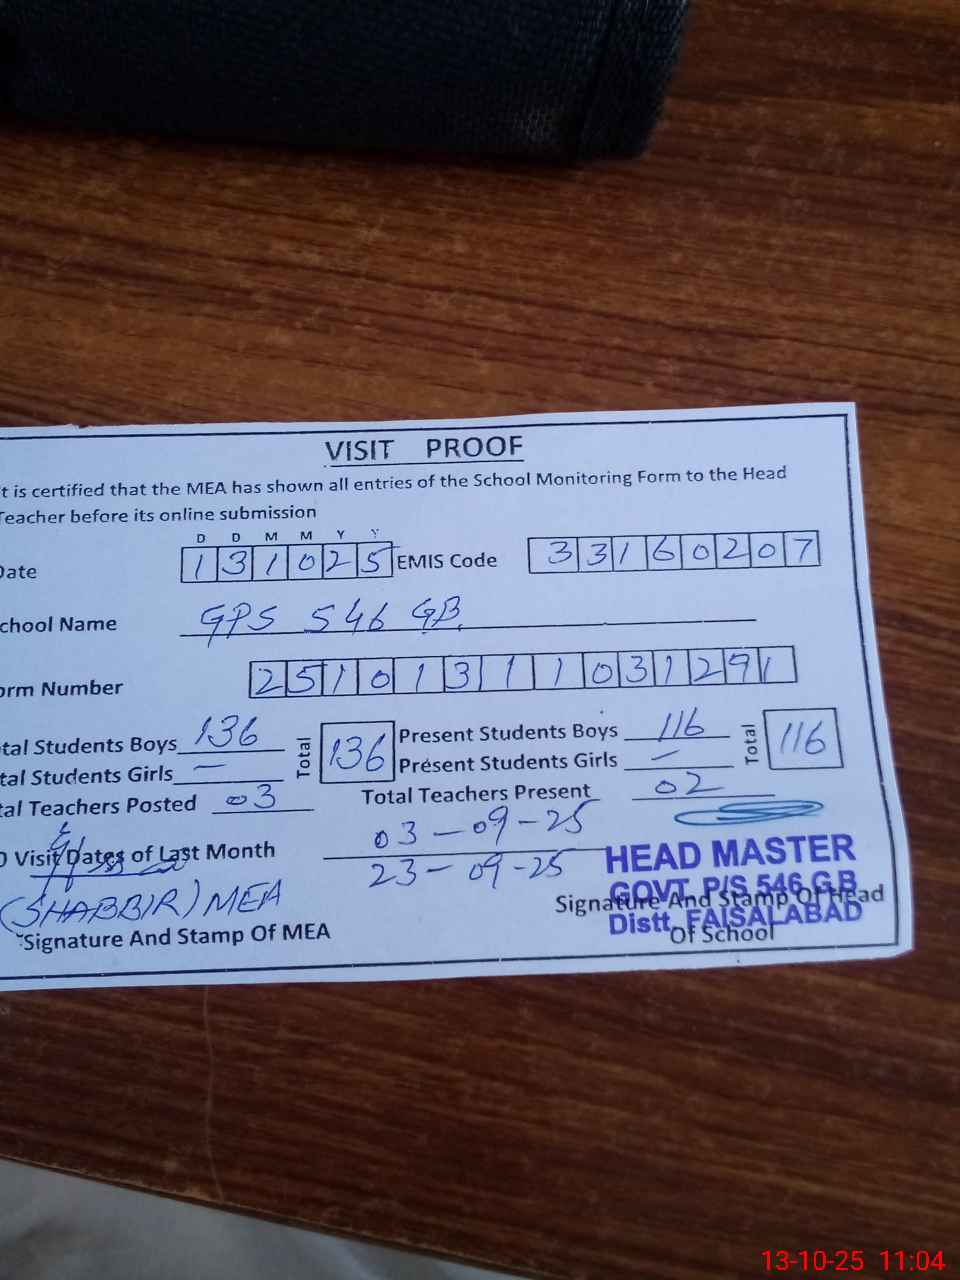 VISIT PROOF
t is certified that the MEA has shown all entries of the School Monitoring Form to the Head
Teacher before its online submission
D D M M Y Y
Date 131025 EMIS Code 33160207
chool Name GPS 546 GB
orm Number 25101311031291
tal Students Boys 136 Total 136 Present Students Boys 116 Total 116
tal Students Girls — Present Students Girls —
tal Teachers Posted 03 Total Teachers Present 02
O Visit Dates of Last Month 03-09-25
23-09-25
HEAD MASTER
GOVT. P/S 546 G.B
Distt. FAISALABAD
(SHABBIR) MEA
Signature And Stamp Of MEA
Signature And Stamp Of Head
Of School
13-10-25 11:04